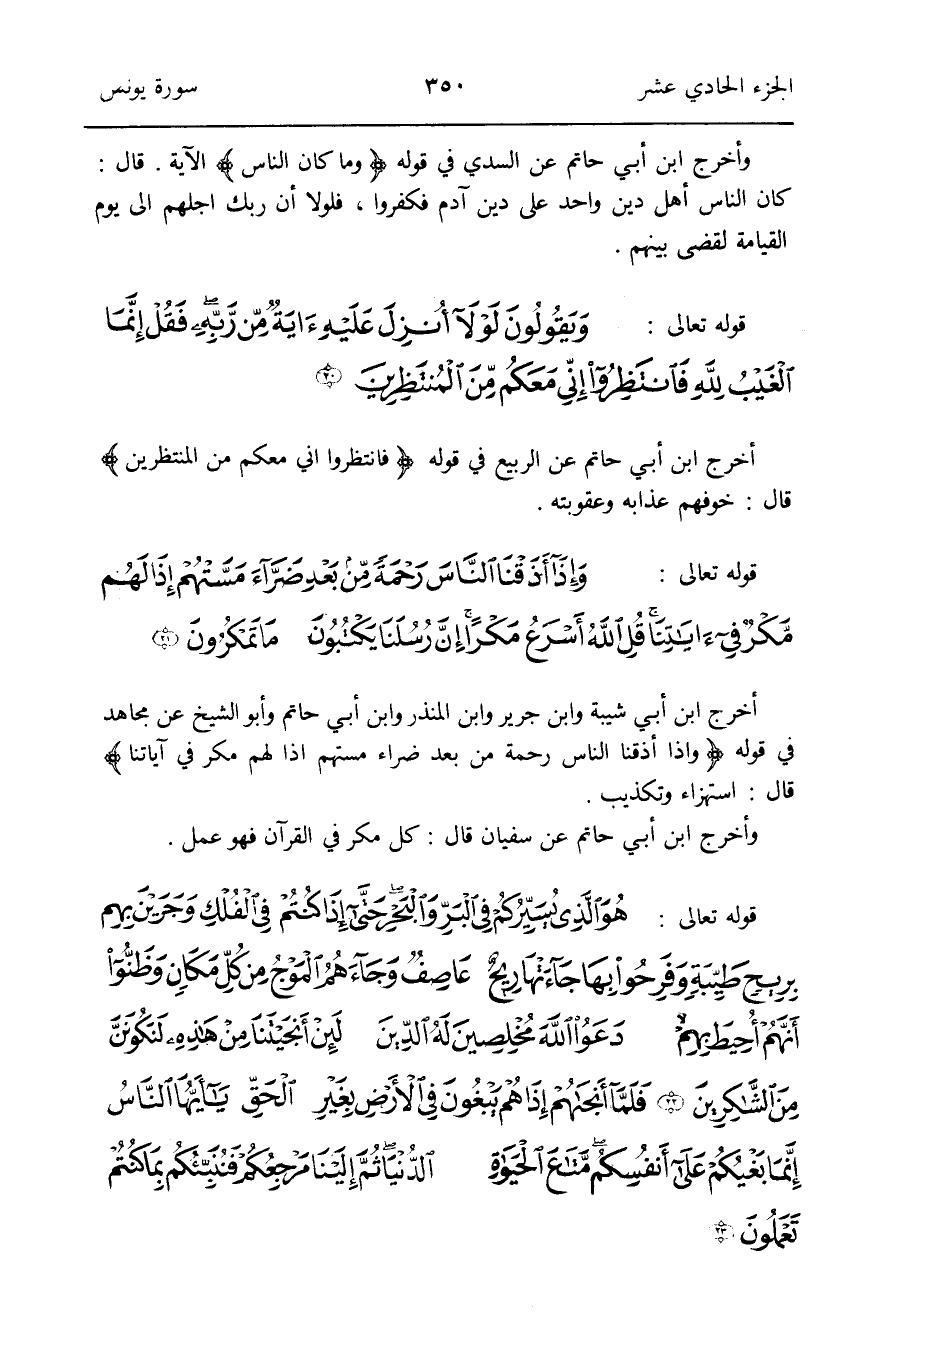 الجزء الحادي عشر ٣٥٠ سورة يونس
وأخرج ابن أبي حاتم عن السدي في قوله ﴿ وما كان الناس ﴾ الآية . قال :
كان الناس أهل دين واحد على دين آدم فكفروا ، فلولا أن ربك اجلهم الى يوم
القيامة لقضى بينهم .
قوله تعالى : وَيَقُولُونَ لَوْلَآ أُنزِلَ عَلَيْهِ ءَايَةٌ مِّن رَّبِّهِۦ ۖ فَقُلْ إِنَّمَا
ٱلْغَيْبُ لِلَّهِ فَٱنتَظِرُوٓا۟ إِنِّى مَعَكُم مِّنَ ٱلْمُنتَظِرِينَ ۝٢٠
أخرج ابن أبي حاتم عن الربيع في قوله ﴿ فانتظروا اني معكم من المنتظرين ﴾
قال : خوفهم عذابه وعقوبته .
قوله تعالى : وَإِذَآ أَذَقْنَا ٱلنَّاسَ رَحْمَةً مِّنۢ بَعْدِ ضَرَّآءَ مَسَّتْهُمْ إِذَا لَهُم
مَّكْرٌ فِىٓ ءَايَاتِنَا ۚ قُلِ ٱللَّهُ أَسْرَعُ مَكْرًا ۚ إِنَّ رُسُلَنَا يَكْتُبُونَ مَا تَمْكُرُونَ ۝٢١
أخرج ابن أبي شيبة وابن جرير وابن المنذر وابن أبي حاتم وأبو الشيخ عن مجاهد
في قوله ﴿ واذا أذقنا الناس رحمة من بعد ضراء مستهم اذا لهم مكر في آياتنا ﴾
قال : استهزاء وتكذيب .
وأخرج ابن أبي حاتم عن سفيان قال : كل مكر في القرآن فهو عمل .
قوله تعالى : هُوَ ٱلَّذِى يُسَيِّرُكُمْ فِى ٱلْبَرِّ وَٱلْبَحْرِ ۖ حَتَّىٰٓ إِذَا كُنتُمْ فِى ٱلْفُلْكِ وَجَرَيْنَ بِهِم
بِرِيحٍ طَيِّبَةٍ وَفَرِحُوا۟ بِهَا جَآءَتْهَا رِيحٌ عَاصِفٌ وَجَآءَهُمُ ٱلْمَوْجُ مِن كُلِّ مَكَانٍ وَظَنُّوٓا۟
أَنَّهُمْ أُحِيطَ بِهِمْ ۙ دَعَوُا۟ ٱللَّهَ مُخْلِصِينَ لَهُ ٱلدِّينَ لَئِنْ أَنجَيْتَنَا مِنْ هَٰذِهِۦ لَنَكُونَنَّ
مِنَ ٱلشَّٰكِرِينَ ۝٢٢ فَلَمَّآ أَنجَىٰهُمْ إِذَا هُمْ يَبْغُونَ فِى ٱلْأَرْضِ بِغَيْرِ ٱلْحَقِّ يَٰٓأَيُّهَا ٱلنَّاسُ
إِنَّمَا بَغْيُكُمْ عَلَىٰٓ أَنفُسِكُم ۖ مَّتَٰعَ ٱلْحَيَوٰةِ ٱلدُّنْيَا ۖ ثُمَّ إِلَيْنَا مَرْجِعُكُمْ فَنُنَبِّئُكُم بِمَا كُنتُمْ
تَعْمَلُونَ ۝٢٣